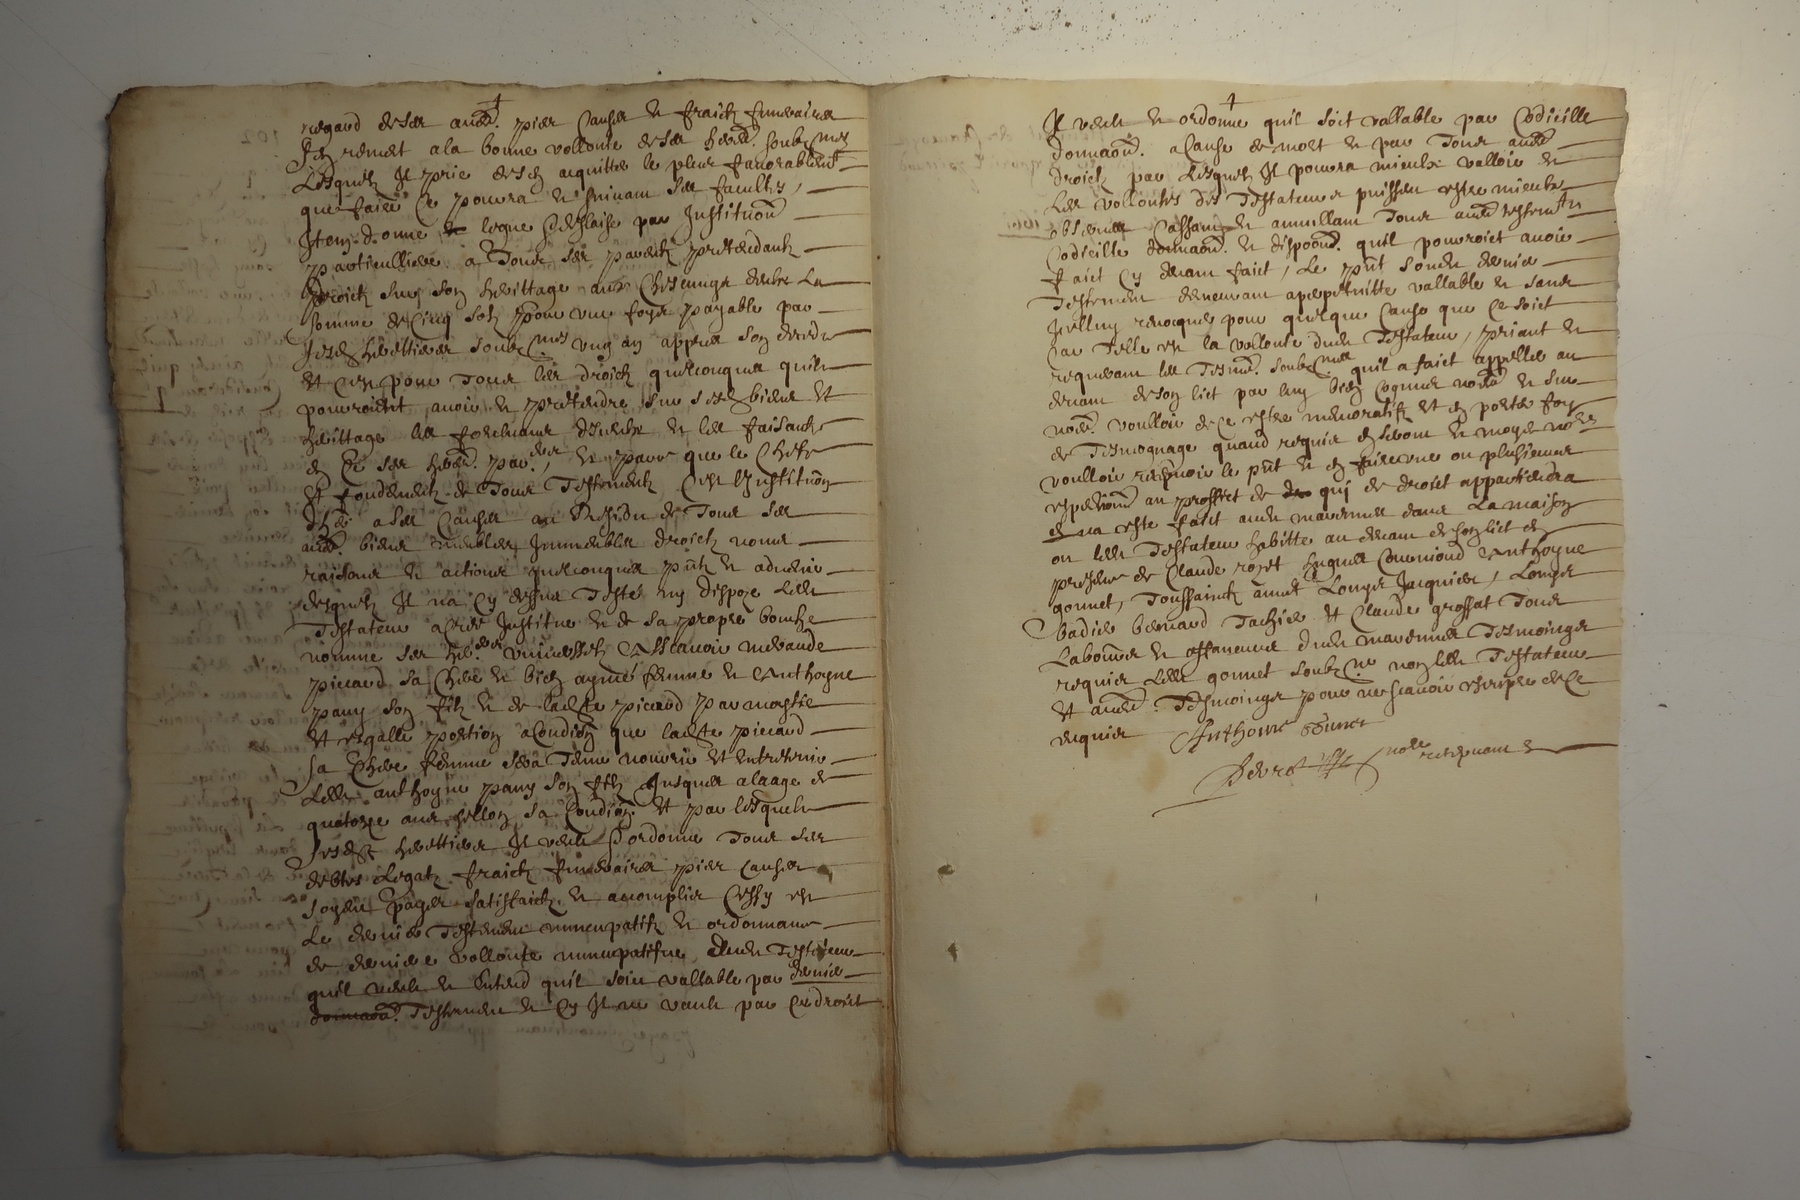 regard de ses autres pies causes et fraictz funeraires
Il sen remect a la bonne vollonte de ses heretiers soubz nommes
Lesquelz Il prie de sen acquitter le plus favorablement
que faire ce pourra et suivant ses facultes,
Item donne et legue et deslaisse par Institution
particulliere a Tous ses parentz pretendantz
droictz sur son herittage aux chescungs deulx La
somme de Cincq solz pour une foys payable par
sesd herettiers soubz nommes ung an appres son deceds
Et ce pour Tous les droictz quelconques quilz
pourroient avoir et pretendre sur sesd biens Et
herittage les forcluant diceulx et les faisantz
en ce ses particuliers, et parce que le Chefz
Et fondement de Tous Testamentz Est l Institution
a Ses Causes au Residu de Tous ses
aultres biens meubles Immeubles droictz noms
raisons et actions quelconques pntz et advenir
desquelz Il na Cy dessus Testé ny dispozé Led
Testateur a Creé Institué et de sa propre bouche
nommé ses universelz Asscavoir meraude
piccard sa chere et bien aymée femme et Anthoyne
pany son filz et de ladte piccard par moytie
Et esgalle portion a Condion que ladte piccard
sa Chere femme sera Tenue nourrir Et Entretenir
Led anthoyne pany son filz Jusques a laage de
quatorze ans sellon sa Condion Et par lesquelz
sesd herettiers Il veult Et ordonne Tous ses
debtes Legatz fraictz funeraires pies causes
soyent payes satisfaictz et acomplis Cessy est
Le dernier Testement nuncupatifz et ordonnance
de derniere vollonte nuncupatifve dud Testateur
quil veult et Entend quil soict vallable par dernier
Testement et Cy Il ne vault par Ce droict
Il veult et ordonne quil soit vallable par Codicille
donnaon a Cause de mort et par Tous aultres
droictz par Lesquelz Il pourra mieulx valloir et
Les vollontes dud Testateur puissent estre mieulx
observées Cassant et annullant Tous aultres testementz
Codicille donnaon et disposon quil pourroict avoir
faict Cy devant faict, Le pnt soud dernier
Testement demeurant a perpetuitte vallable et sans
Icelluy revocquer pour quelque Cause que Ce soict
Car Telle est la vollonté dud Testateur, priant et
requerant les Tesmoins soubz nommes quil a faict appeller au
devant de son lict par luy bien Cognus
voulloir de Ce estre memoratifz Et en porter foy
de Tesmoignage quand requis en seront et moye notaire
voulloir recepvoir le pnt et en faire une ou plusieurs
expedions au proffict de qui de droict appartiendra
et a este faict aud marennes dans La maison
ou led Testateur habitte au devant de son lict en
presence de Claude rozet hugues Anthoyne
gonnet, Toussainctz Longes Jacquier, Longes
badier bernard Tachier Et Claude grossat Tous
Laboureurs et affaneurs dud marennes Tesmoingz
requis Led gonnet soubzne non led Testateur
Et aultres Tesmoingz pour ne scavoir escripre de Ce
requis Anthoine Gonnet
notre recepvant